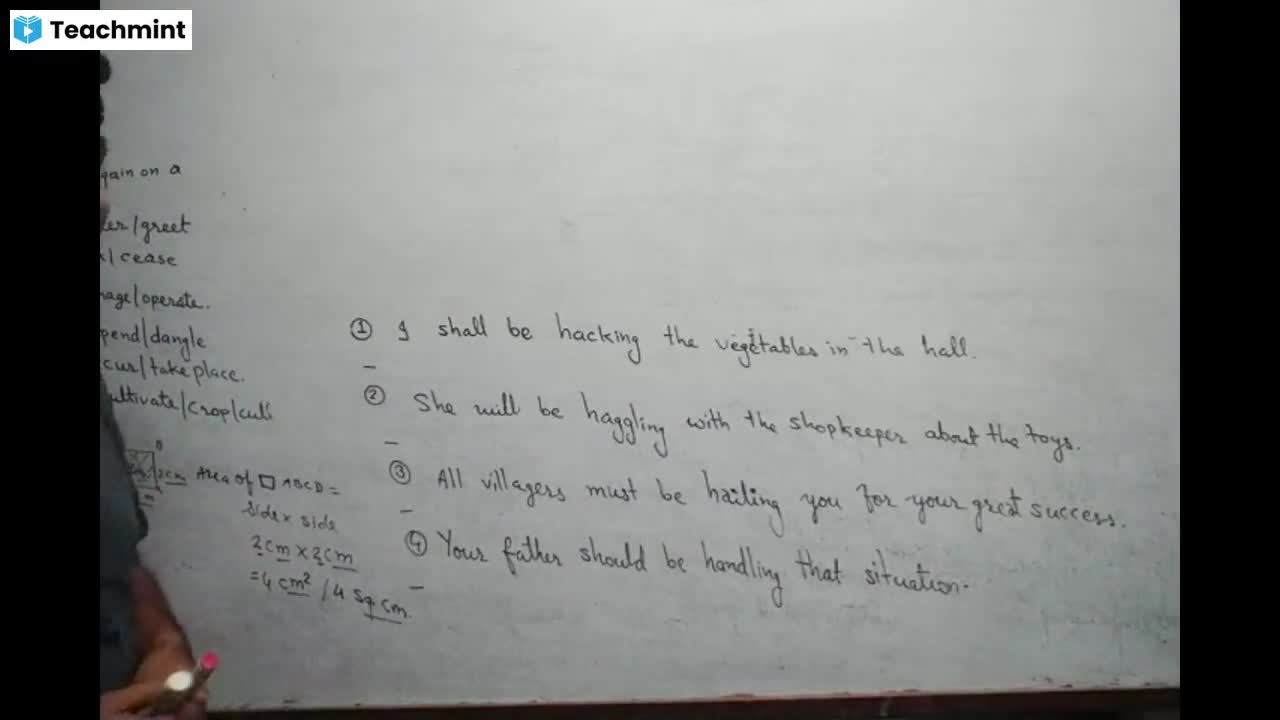 Teachmint
gain on a
/greet
/cease
/operate.
/dangle
/take place.
/crop/
① I shall be hacking the vegetables in the hall.
② She will be haggling with the shopkeeper about the toys.
③ All villagers must be hailing you for your great success.
④ Your father should be handling that situation.
2cm Area of □ ABCD =
side × side
2cm × 2cm
= 4 cm² / 4 sq cm.